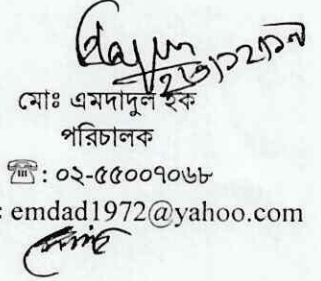 মোঃ এমদাদুল হক
পরিচালক
☎: ০২-৫৫০০৭০৬৮
: emdad1972@yahoo.com